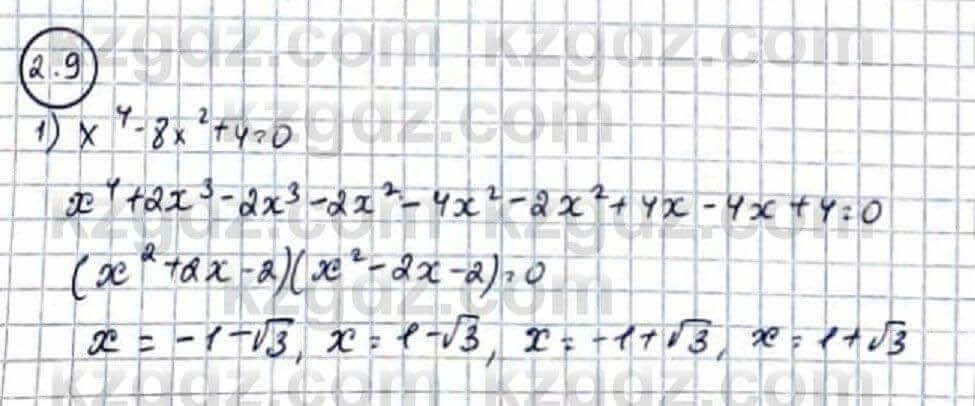 kzgdz.com kzgdz.com
2.9
1) x⁴-8x²+4=0
kzgdz.com
x⁴+2x³-2x³-2x²-4x²-2x²+4x-4x+4=0
(x²+2x-2)(x²-2x-2)=0
kzgdz.com
x=-1-√3, x=1-√3, x=-1+√3, x=1+√3
kzgdz.com kzgdz.com